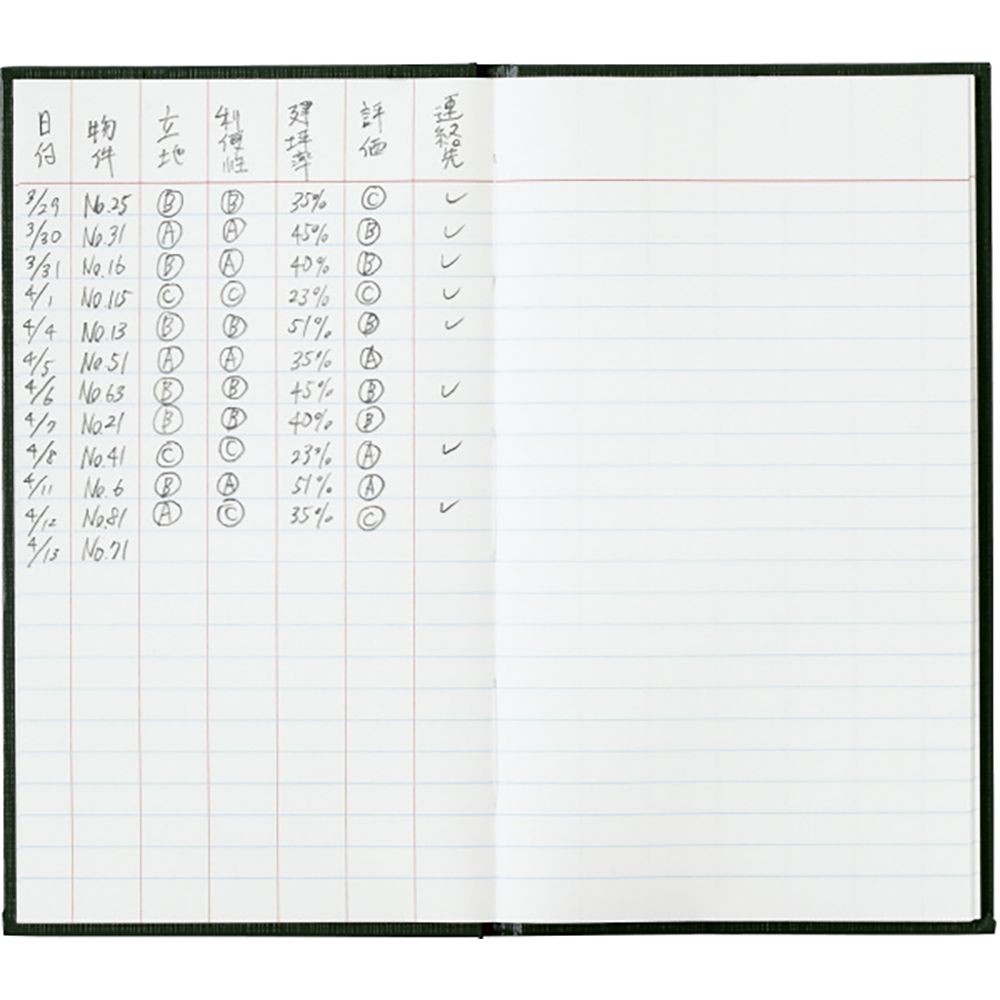 日付 物件 立地 利便性 建坪率 評価 連絡先
3/29 No.25 Ⓑ Ⓑ 35% Ⓒ ✓
3/30 No.31 Ⓐ Ⓐ 45% Ⓑ ✓
3/31 No.16 Ⓑ Ⓐ 40% Ⓑ ✓
4/1 No.115 Ⓒ Ⓒ 23% Ⓒ ✓
4/4 No.13 Ⓑ Ⓑ 51% Ⓑ ✓
4/5 No.51 Ⓐ Ⓐ 35% Ⓐ
4/6 No.63 Ⓑ Ⓑ 45% Ⓑ ✓
4/7 No.21 Ⓑ Ⓑ 40% Ⓑ
4/8 No.41 Ⓒ Ⓒ 23% Ⓐ ✓
4/11 No.6 Ⓑ Ⓐ 51% Ⓐ
4/12 No.81 Ⓐ Ⓒ 35% Ⓒ ✓
4/13 No.71